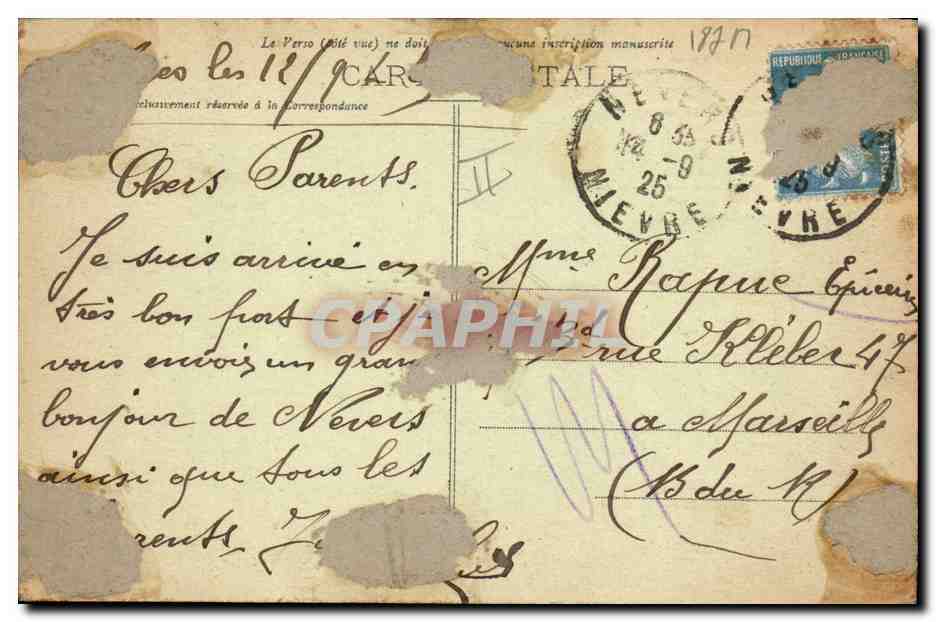 Le Verso (côté vue) ne doit aucune inscription manuscrite
187 M
les 12/9/
CAR STALE
exclusivement réservée à la Correspondance
REPUBLIQUE FRANÇAISE
NEVERS
8
14 -9
25
NIEVRE
NIEVRE
Chers Parents.
Je suis arrivé en
très bon port et je
vous envois un gran
bonjour de Nevers
ainsi que tous les
rents
Mme Rapue Epicerie
Bd rue Kléber 47
a Marseille
(B du R)
CPAPHIL